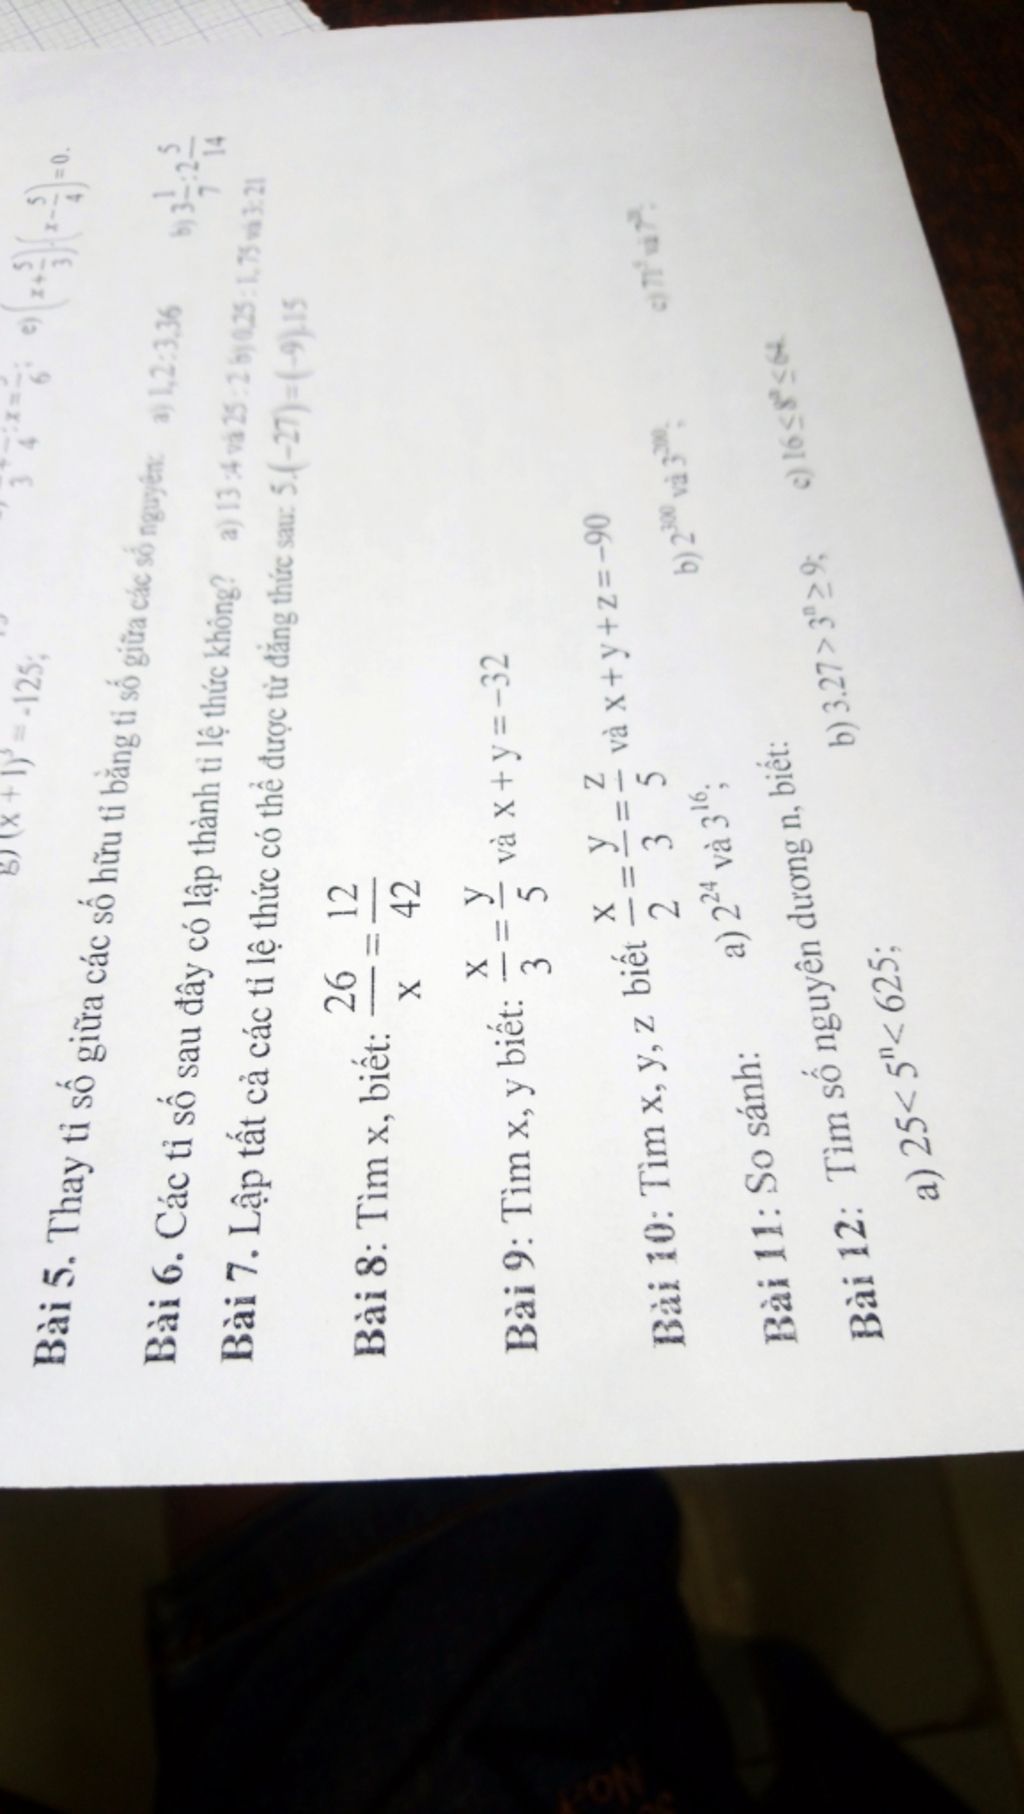 g) (x + 1)³ = -125;
3 4 : x = 6; e) (x + 5/3)(x − 5/4) = 0.
Bài 5. Thay tỉ số giữa các số hữu tỉ bằng tỉ số giữa các số nguyên: a) 1,2 : 3,36 b) 3 1/7 : 2 5/14
Bài 6. Các tỉ số sau đây có lập thành tỉ lệ thức không? a) 13 : 4 và 25 : 2 b) 0,25 : 1,75 và 3: 21
Bài 7. Lập tất cả các tỉ lệ thức có thể được từ đẳng thức sau: 5.(−27) = (−9).15
Bài 8: Tìm x, biết: 26/x = 12/42
Bài 9: Tìm x, y biết: x/3 = y/5 và x + y = −32
Bài 10: Tìm x, y, z biết x/2 = y/3 = z/5 và x + y + z = −90
Bài 11: So sánh: a) 2²⁴ và 3¹⁶; b) 2³⁰⁰ và 3²⁰⁰; c) và
Bài 12: Tìm số nguyên dương n, biết:
a) 25 < 5ⁿ < 625; b) 3.27 > 3ⁿ ≥ 9; c) 16 ≤ 8ⁿ ≤ 64